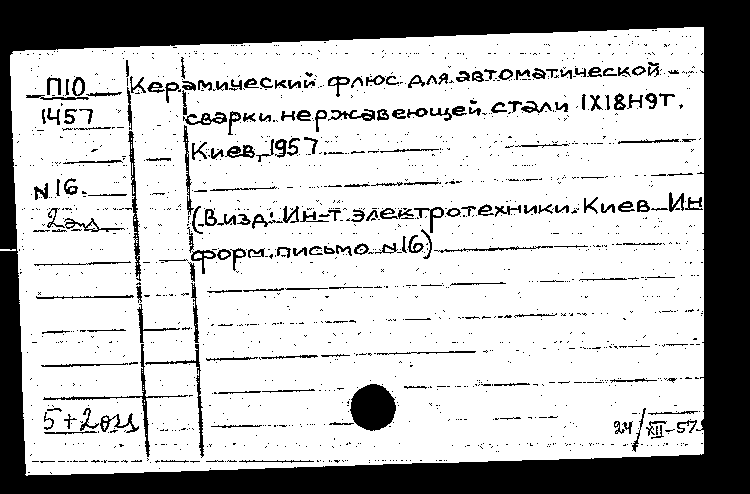 П10 Керамический флюс для автоматической
1457 сварки нержавеющей стали 1Х18Н9Т.
Киев, 1957
N16.
2 экз (В изд: Ин-т электротехники. Киев Ин
форм. письмо N16)
5+2 экз
24/XII-57г